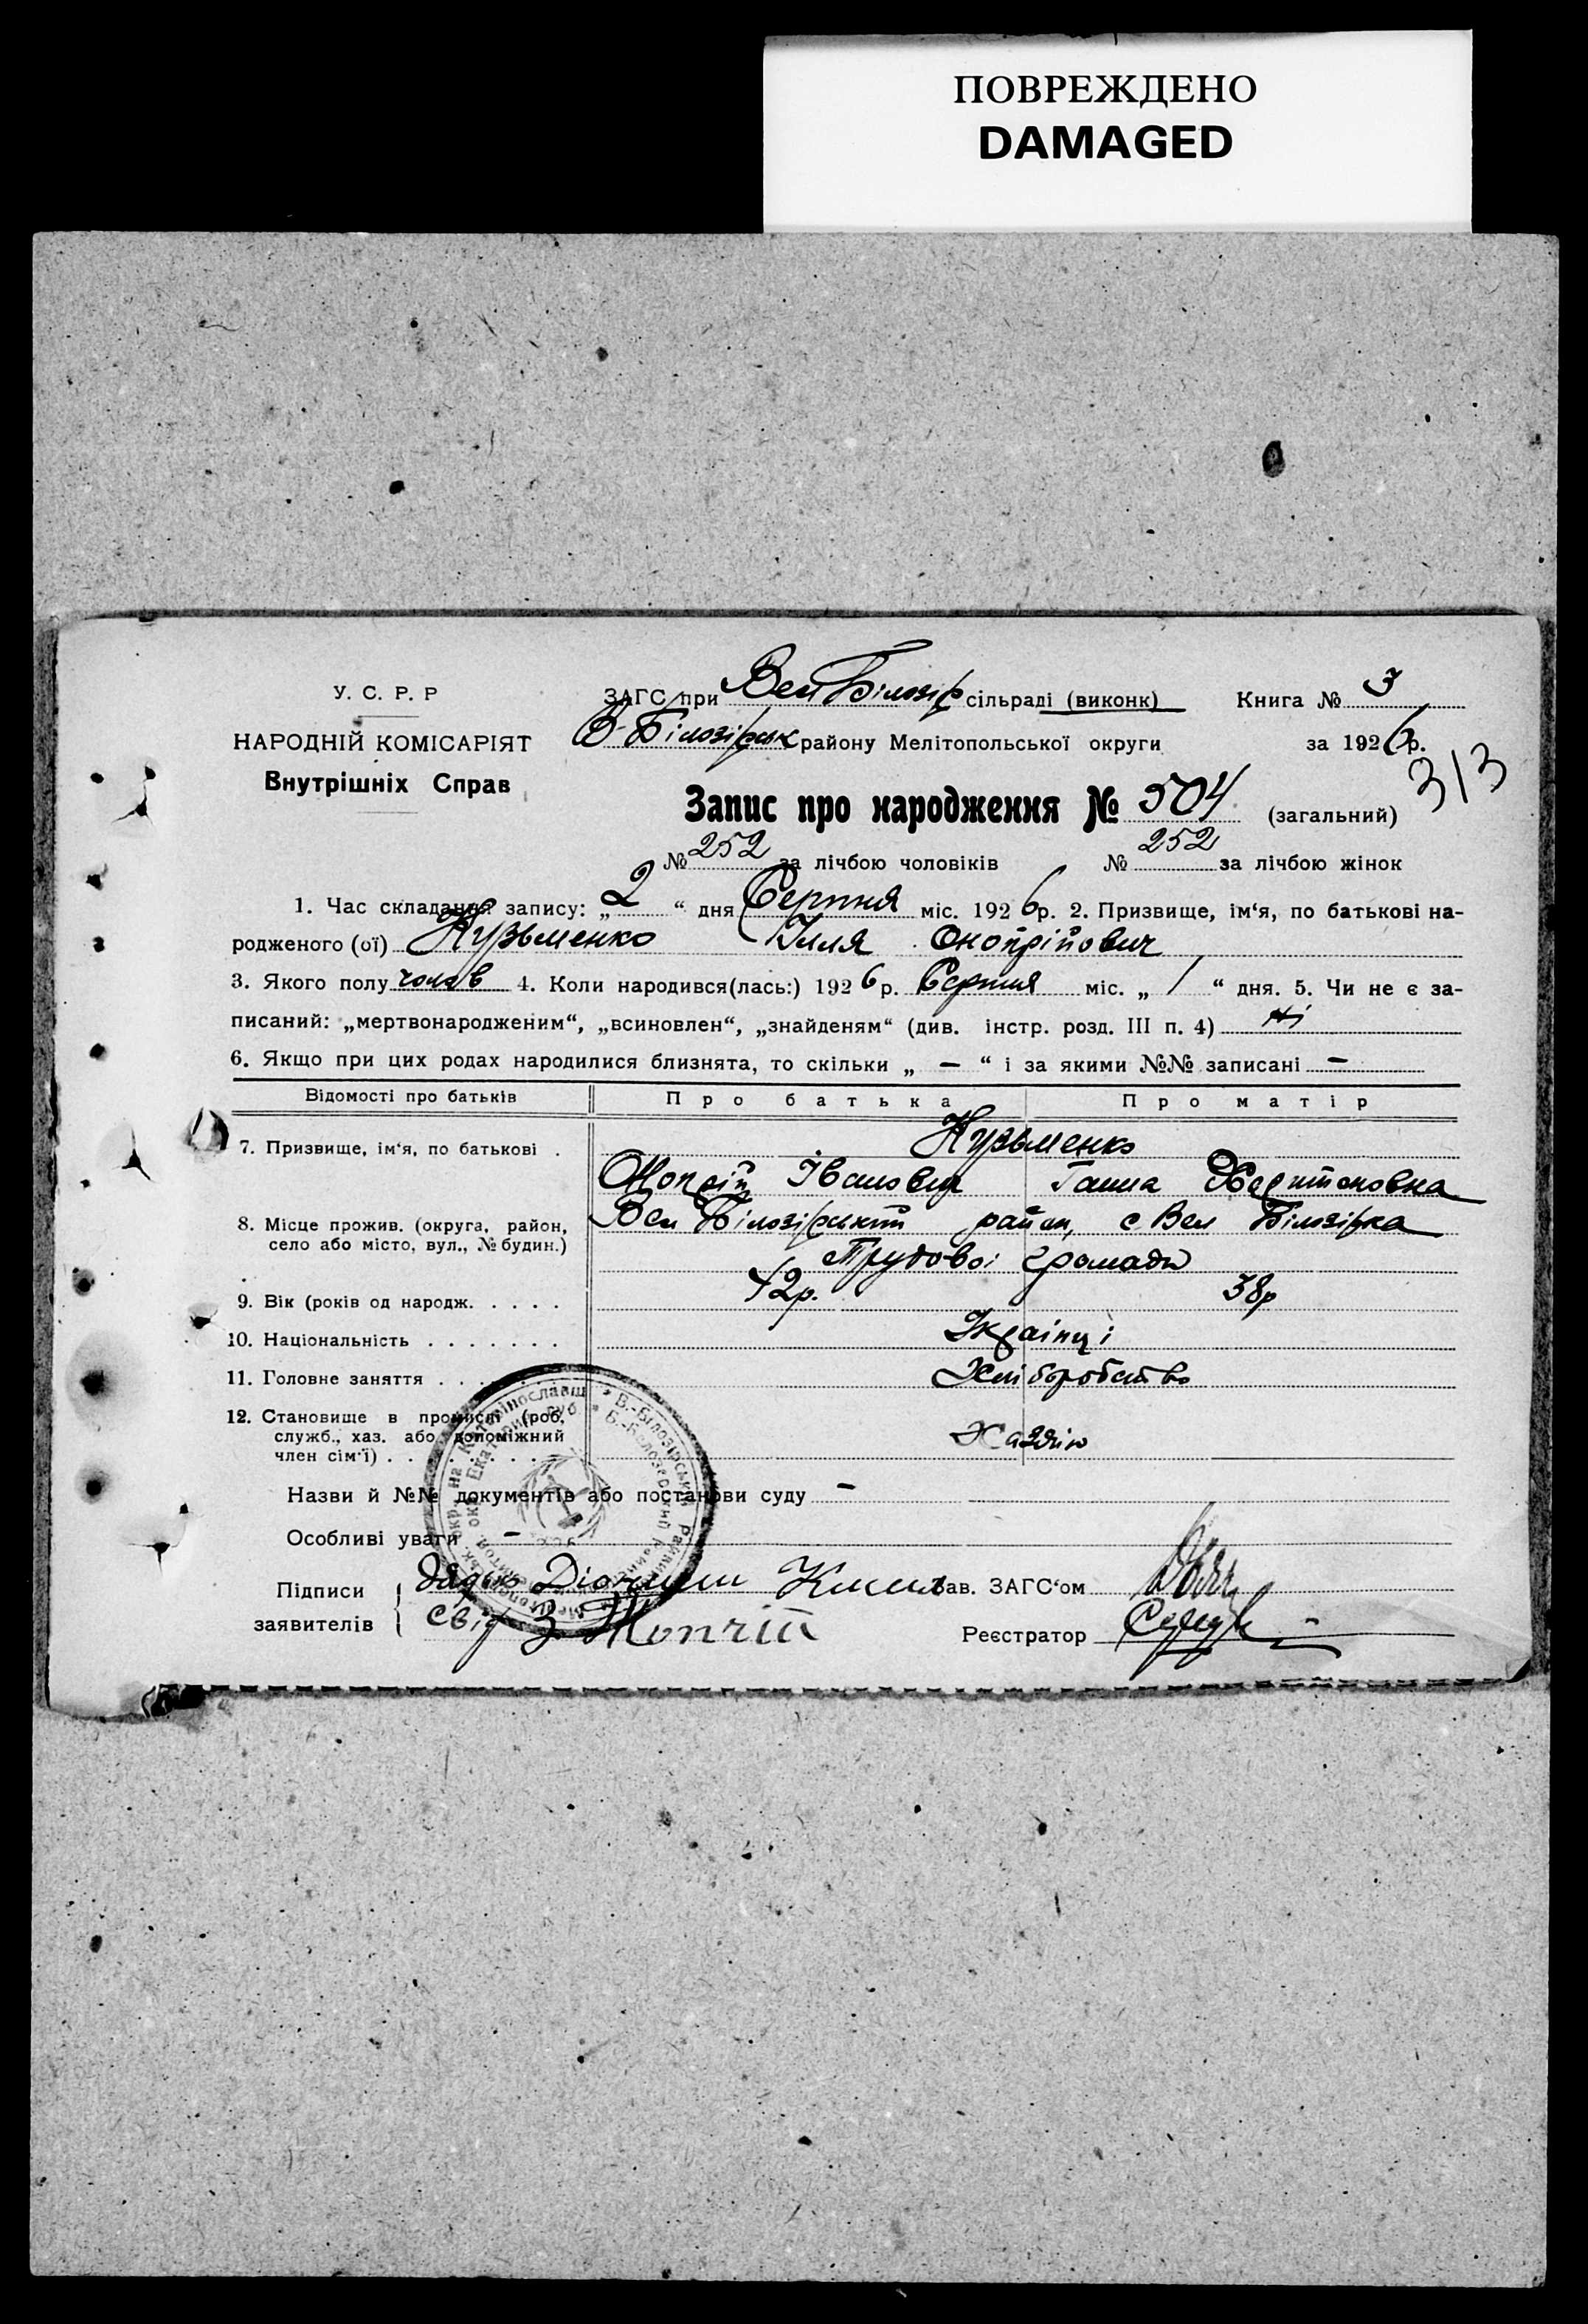 ПОВРЕЖДЕНО
DAMAGED
У. С. Р. Р
НАРОДНІЙ КОМІСАРІЯТ
Внутрішніх Справ
ЗАГС при Вел Білозір сільраді (виконк) Книга № 3
В-Білозірськ району Мелітопольської округи за 1926р.
313
Запис про народження № 504 (загальний)
№ 252 за лічбою чоловіків № 252 за лічбою жінок
1. Час складання запису: „2“ дня Серпня міс. 1926р. 2. Призвище, ім‘я, по батькові на-
родженого (ої) Кузьменко Ілля Онопрійович
3. Якого полу чолов 4. Коли народився(лась:) 1926р. Серпня міс. „1“ дня. 5. Чи не є за-
писаний: „мертвонародженим“, „всиновлен“, „знайденям“ (див. інстр. розд. III п. 4) ні
6. Якщо при цих родах народилися близнята, то скільки „ — “ і за якими №№ записані —
Відомості про батьків Про батька Про матір
7. Призвище, ім‘я, по батькові . Кузьменко
Онопрій Іванович Ганна
8. Місце прожив. (округа, район, село або місто, вул., № будин.) Вел Білозірський район, с Вел Білозірка
Трудової громади
9. Вік (років од народж. . . . . 42р. 38р
10. Національність . . . . . . . Українці
11. Головне заняття . . . . . . Хліборобство
12. Становище в промислі (роб,
служб., хаз. або допоміжний
член сім‘ї) . . . . . . . Хазяін
Назви й №№ документів або постанови суду —
Особливі уваги —
Підписи
заявителів
Зав. ЗАГС‘ом
свід З
Реєстратор